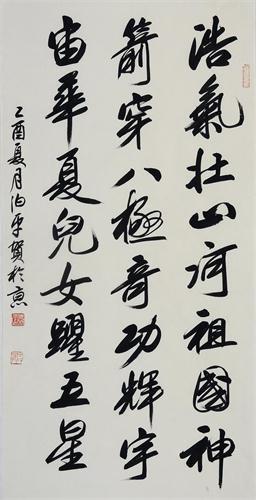 浩氣壮山河祖國神
箭穿八極奇功輝宇
宙華夏兒女躍五星
乙酉夏月泊平賀於京